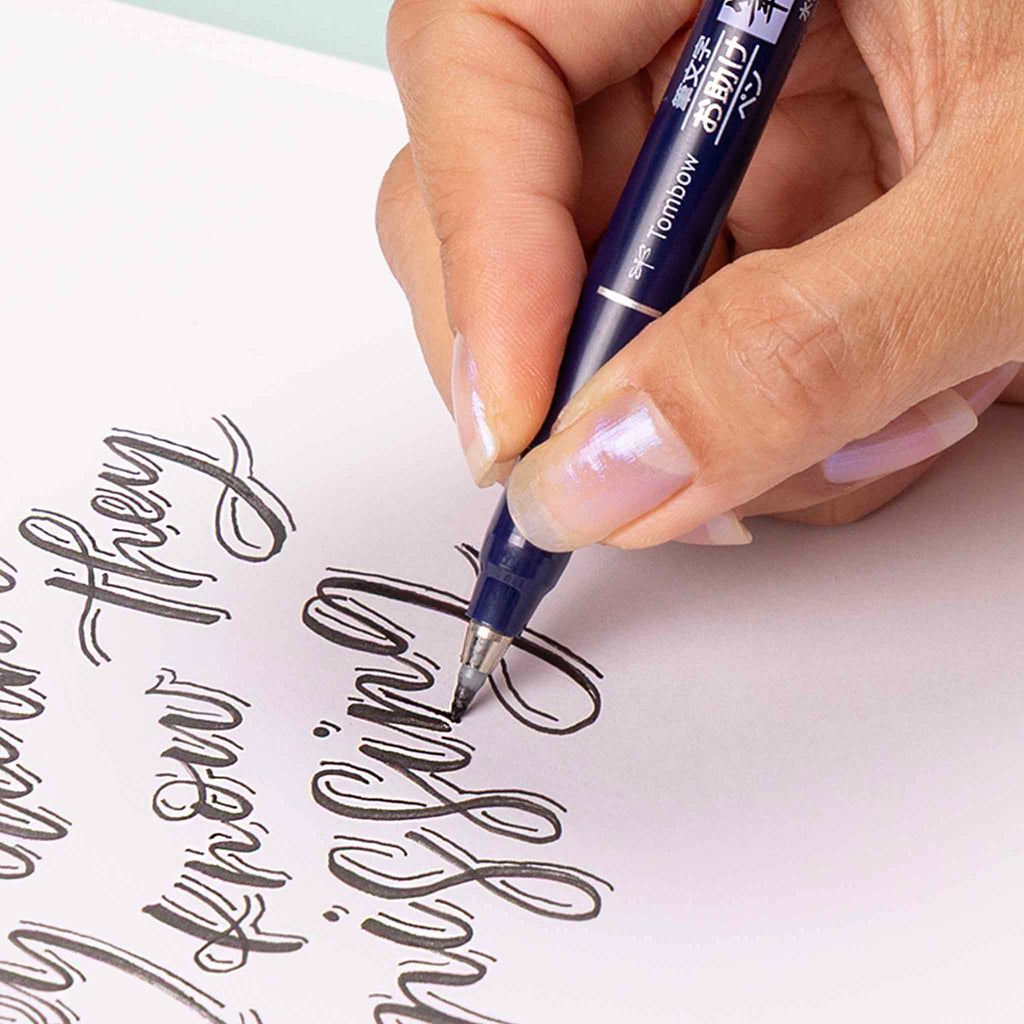 筆文字
お助け
ペン
Tombow
know they
missing